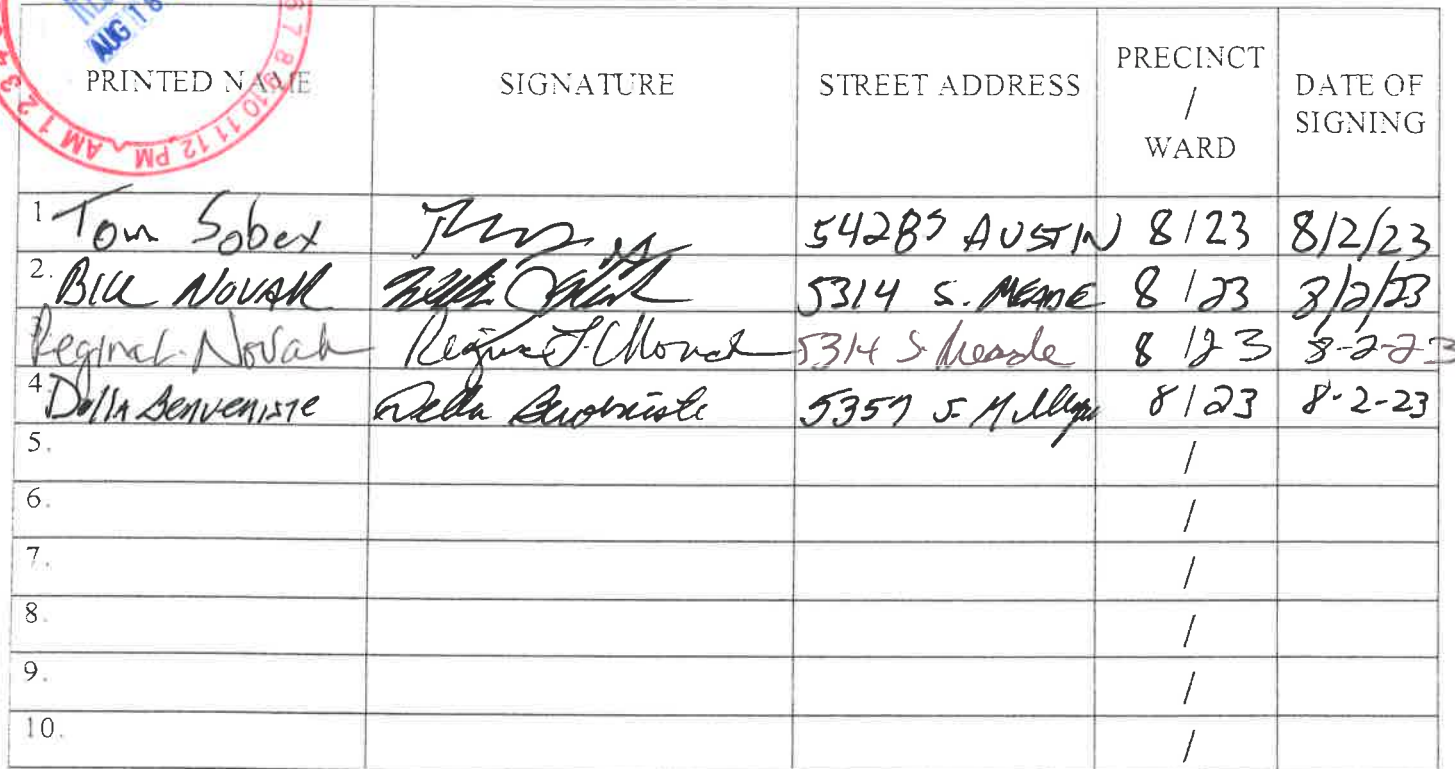 AUG 18
6 7 8 9 10 11 12 PM AM 1 2 3 4
PRINTED NAME SIGNATURE STREET ADDRESS PRECINCT / WARD DATE OF SIGNING
1 Tom Sobex 5428 S AUSTIN 8/23 8/2/23
2. BILL NOVAK 5314 S. MEADE 8/23 8/2/23
Regina L. Novak 5314 S Meade 8/23 8-2-23
4 Della Benveniste Della Benveniste 5357 S. 8/23 8-2-23
5. /
6. /
7. /
8. /
9. /
10. /